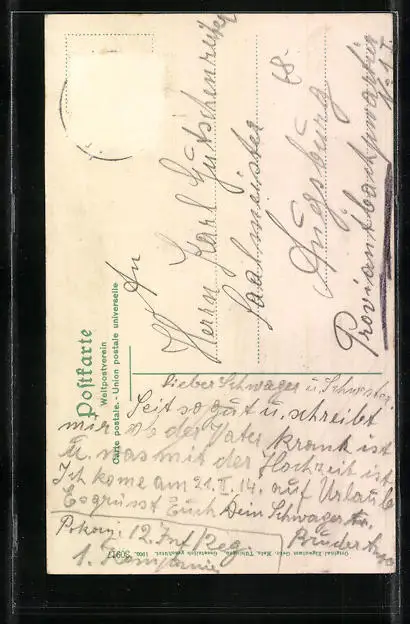 Postkarte
Weltpostverein
Carte postale. - Union postale universelle
An
Herrn Karl Gutschenreiter
Saalmeister
Augsburg 68
Proviantbachquartier
Lieber Schwager u. Schwester
Seit so gut u. schreibt
mir ob der Vater krank ist
u. was mit der Hochzeit ist
Ich kome am 21. II. 14. auf Urlaub
Es grüsst Euch Dein Schwager
Bruder
12. Inf/Reg.
1. Kompanie
50977
Original Eigentum Gebr. Metz, Tübingen. Gesetzlich geschützt.